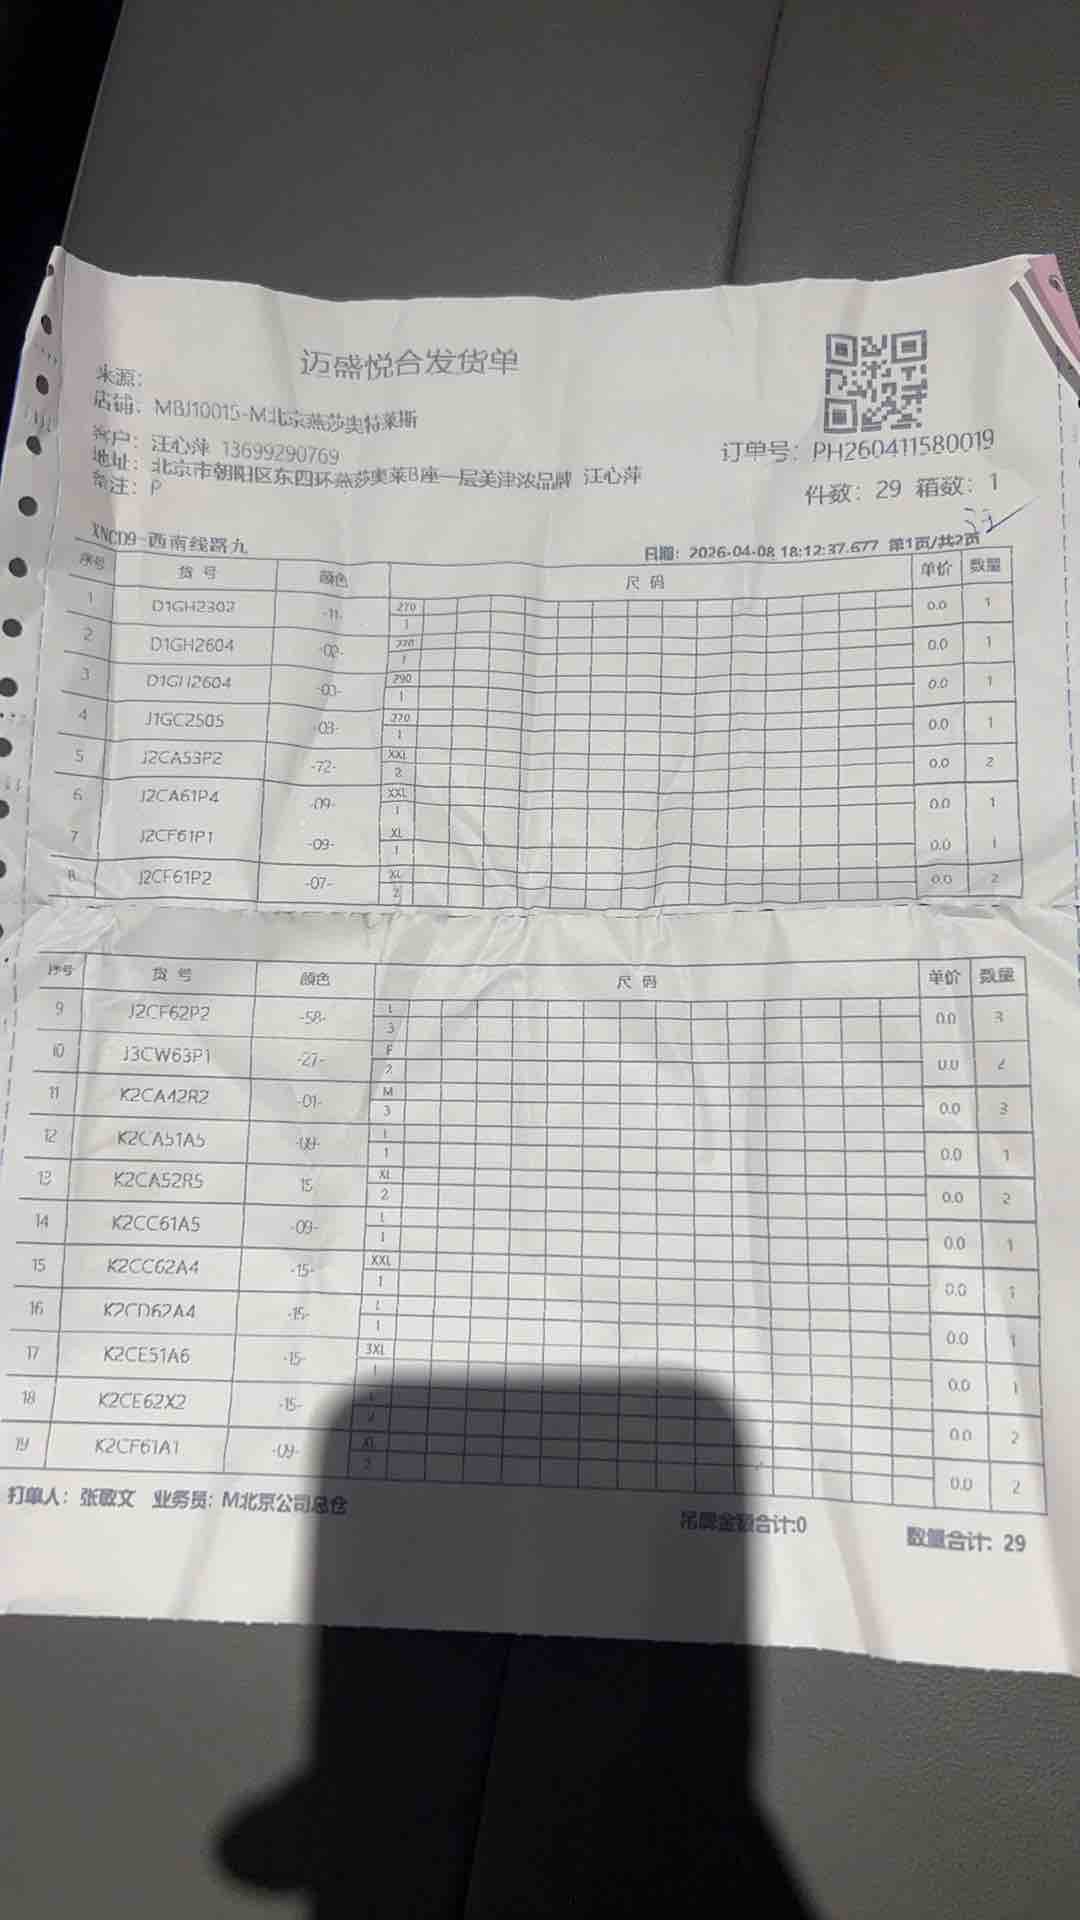 迈盛悦合发货单
来源:
店铺: MBJ10015-M北京燕莎奥特莱斯
客户: 汪心萍 13699290769
订单号: PH260411580019
地址: 北京市朝阳区东四环燕莎奥莱B座一层美津浓品牌 汪心萍
备注: P
件数: 29 箱数: 1
汪
XNCD9-西南线路九
日期: 2026-04-08 18:12:37.677 第1页/共2页
序号 货 号 颜色 尺 码 单价 数量
1 D1GH2302 -11- 270 1 0.0 1
2 D1GH2604 -02- 270 1 0.0 1
3 D1GH2604 -03- 290 1 0.0 1
4 J1GC2505 -03- 270 1 0.0 1
5 J2CA53P2 -72- XXL 2 0.0 2
6 J2CA61P4 -09- XXL 1 0.0 1
7 J2CF61P1 -09- XL 1 0.0 1
8 J2CF61P2 -07- XL 2 0.0 2
序号 货 号 颜色 尺 码 单价 数量
9 J2CF62P2 -58- L 3 0.0 3
10 J3CW63P1 -27- F 2 0.0 2
11 K2CA42R2 -01- M 3 0.0 3
12 K2CA51A5 -09- L 1 0.0 1
13 K2CA52R5 15 XL 2 0.0 2
14 K2CC61A5 -09- L 1 0.0 1
15 K2CC62A4 -15- XXL 1 0.0 1
16 K2CD62A4 -15- L 1 0.0 1
17 K2CE51A6 -15- 3XL 1 0.0 1
18 K2CE62X2 -15- 2 0.0 2
19 K2CF61A1 -09- XL 2 0.0 2
打单人: 张敏文 业务员: M北京公司总仓
吊牌金额合计:0
数量合计: 29